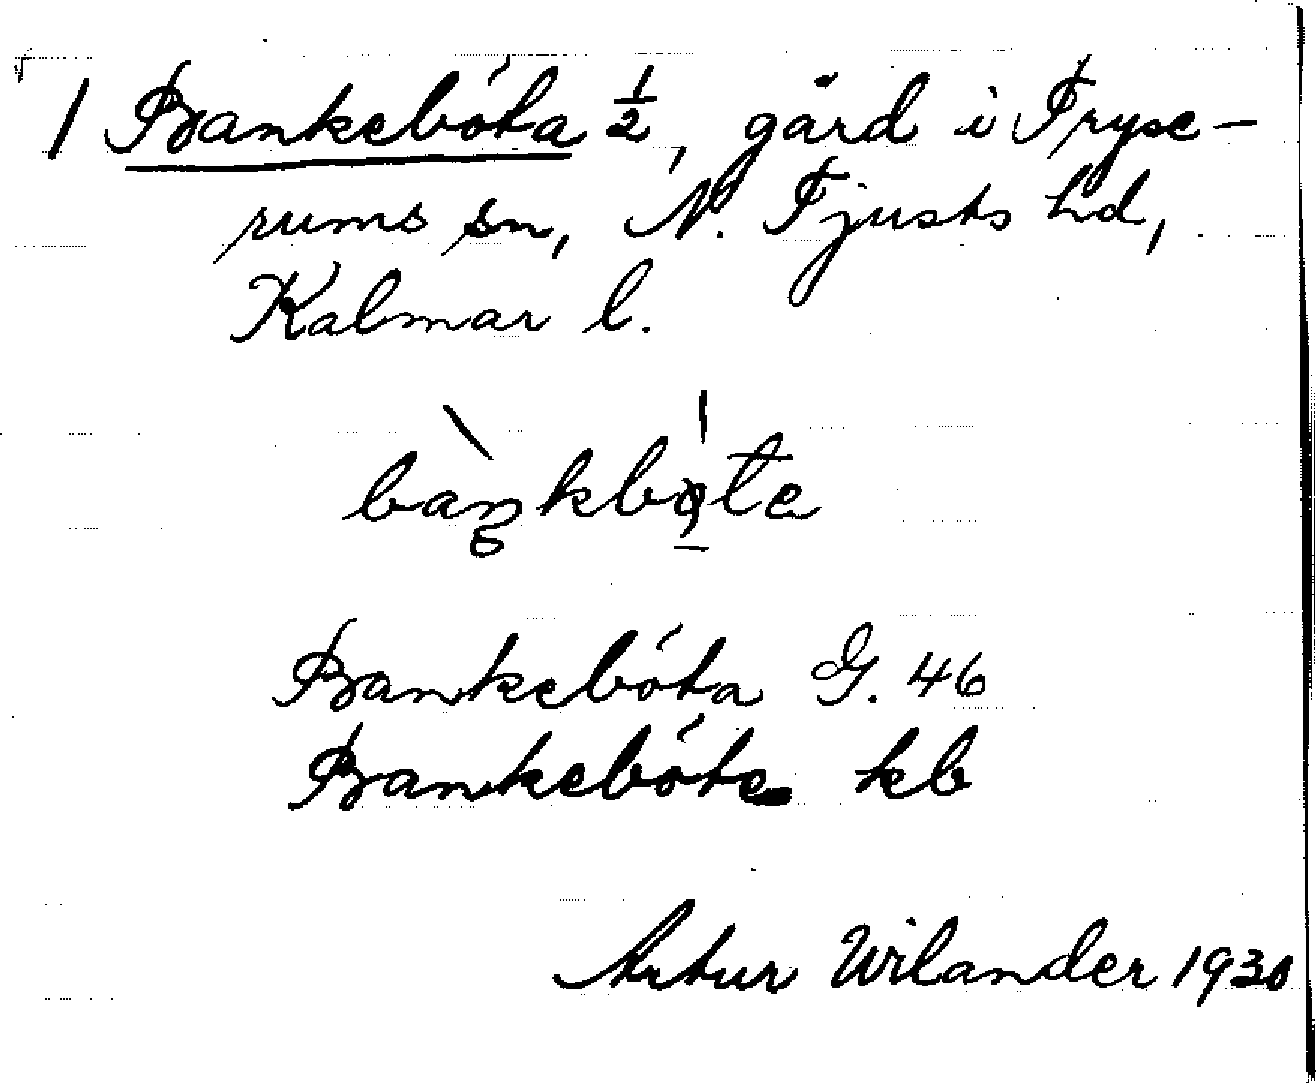 1 Bankeböta ½, gård i Tryse-
rums sn, N. Tjusts hd,
Kalmar l.
Bankeböta G. 46
Bankeböte kb
Artur Wilander 1930